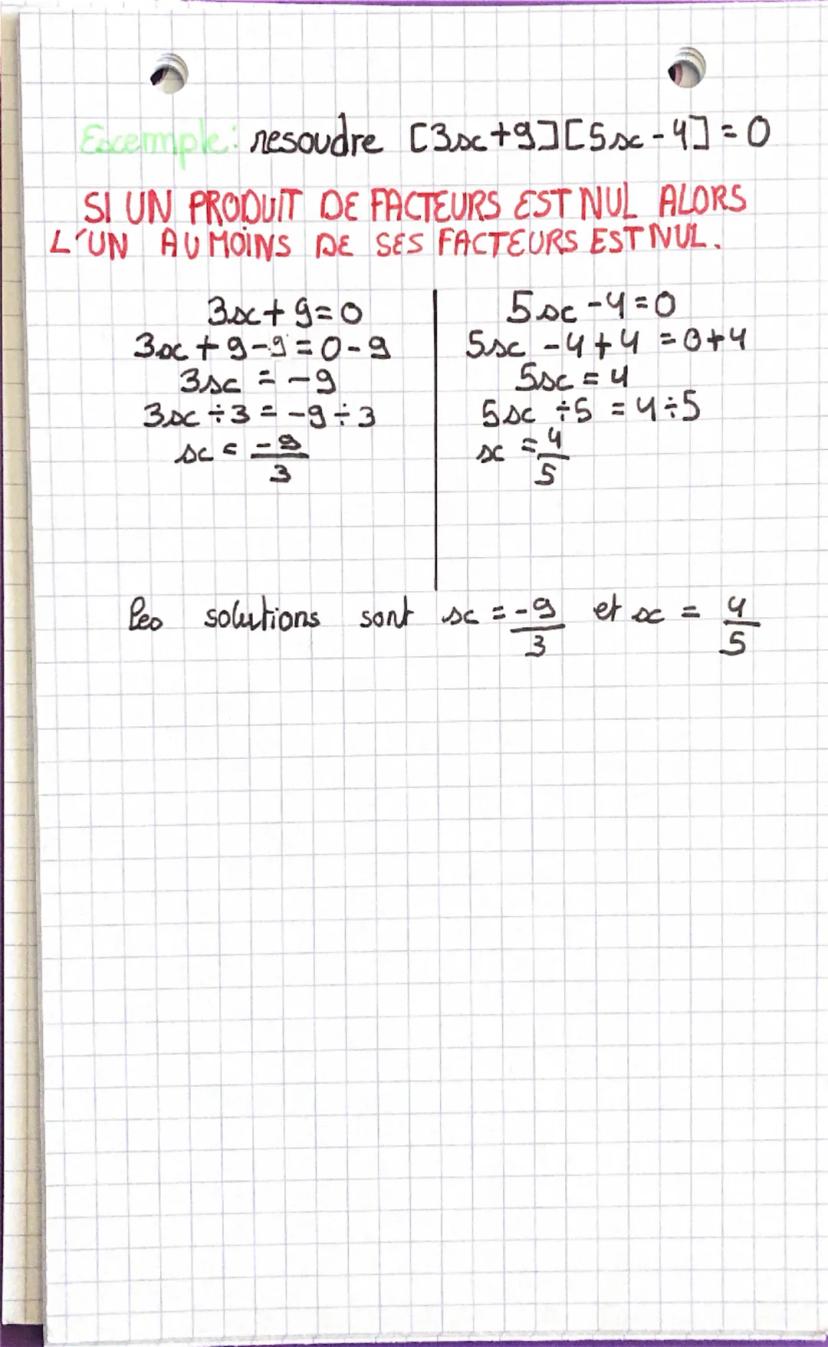 Excemple: resoudre [3x+9][5x-4]=0
SI UN PRODUIT DE FACTEURS EST NUL ALORS
L'UN AU MOINS DE SES FACTEURS EST NUL.
3x+9=0
3x+9-9=0-9
3x=-9
3x÷3=-9÷3
x=-9/3
5x-4=0
5x-4+4=0+4
5x=4
5x÷5=4÷5
x=4/5
les solutions sont x=-9/3 et x=4/5